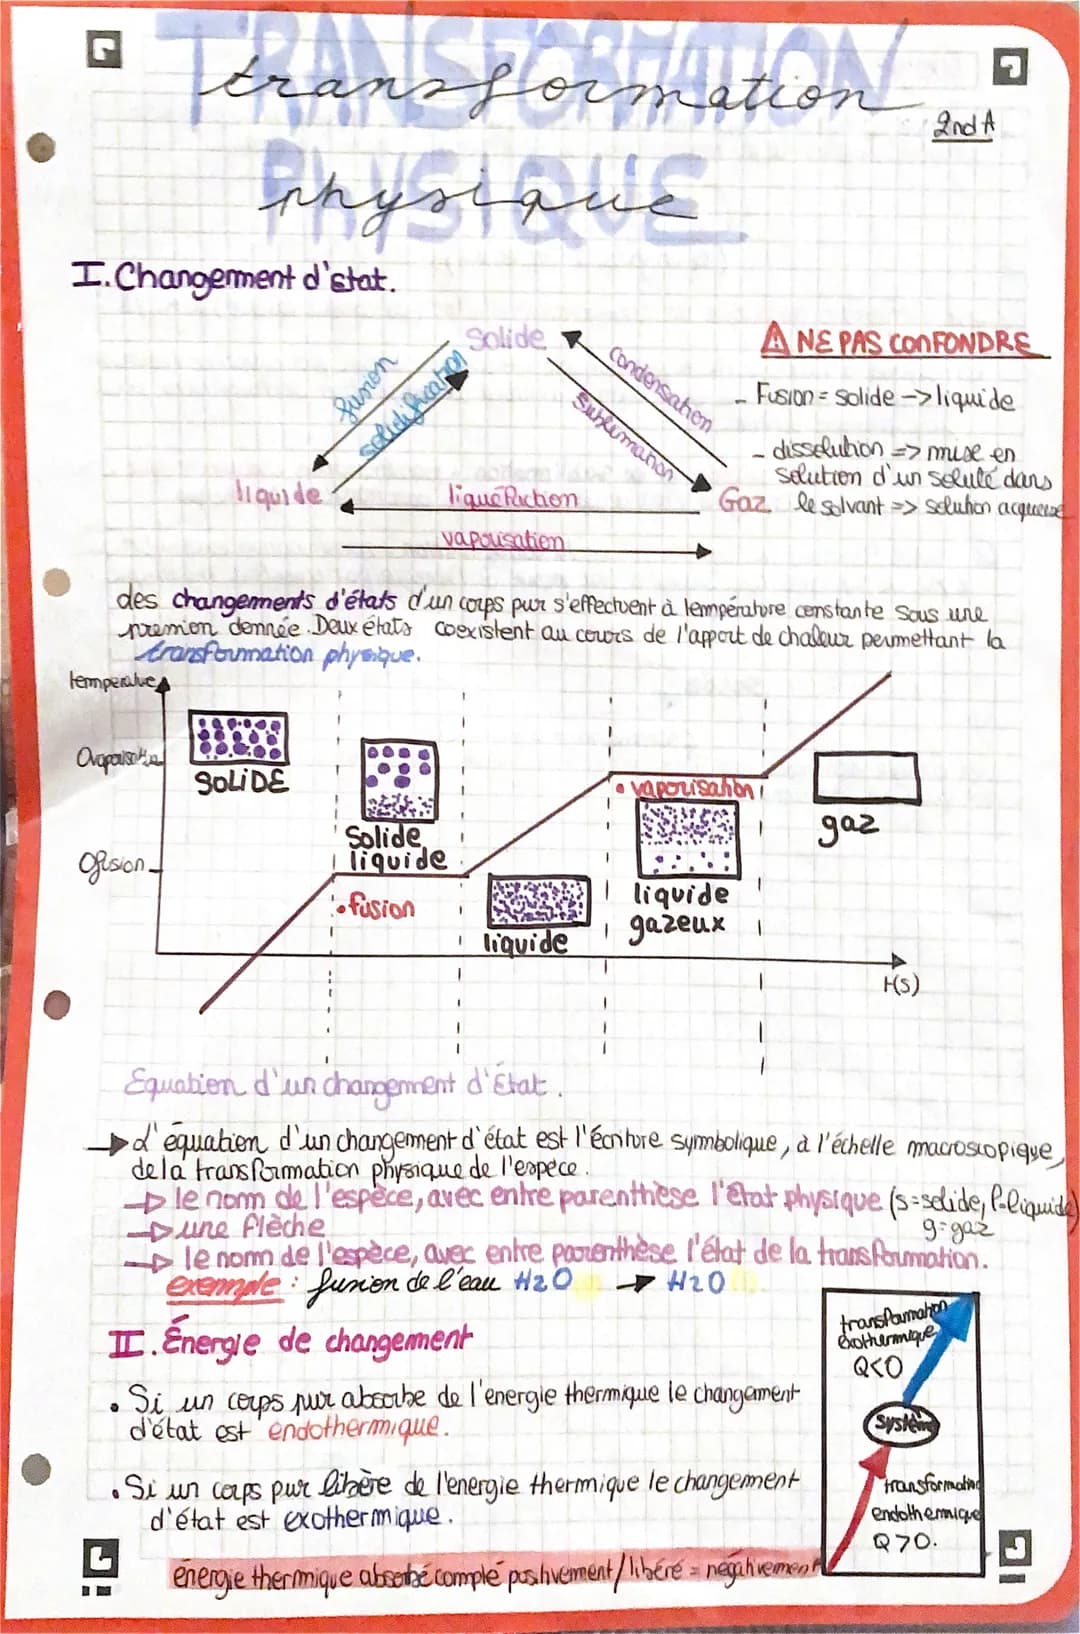 TRANSFORMATION
transformation
2nd A
PHYSIQUE
physique
I. Changement d'état.
Solide
fusion
solidification
condensation
sublimation
liquide
liquéfaction
Gaz
vaporisation
⚠ NE PAS CONFONDRE
- Fusion = solide -> liquide
- dissolution => mise en
solution d'un soluté dans
le solvant => solution acqueuse
des changements d'états d'un corps pur s'effectuent à température constante sous une
pression donnée. Deux états coexistent au cours de l'apport de chaleur permettant la
transformation physique.
température
θvaporisation
SOLIDE
Solide
liquide
θfusion
• fusion
liquide
• vaporisation
liquide
gazeux
gaz
t(s)
Equation d'un changement d'État.
→ L'équation d'un changement d'état est l'écriture symbolique, à l'échelle macroscopique,
de la transformation physique de l'espèce.
→ le nom de l'espèce, avec entre parenthèse l'état physique (s=solide, l=liquide)
g=gaz
→ une flèche
→ le nom de l'espèce, avec entre parenthèse l'état de la transformation.
exemple : fusion de l'eau H2O → H2O
II. Énergie de changement
• Si un corps pur absorbe de l'energie thermique le changement
d'état est endothermique.
• Si un corps pur libère de l'energie thermique le changement
d'état est exothermique.
transformation
exothermique
Q<0
Système
transformation
endothermique
Q>0.
énergie thermique absorbé compté positivement/libéré = négativement